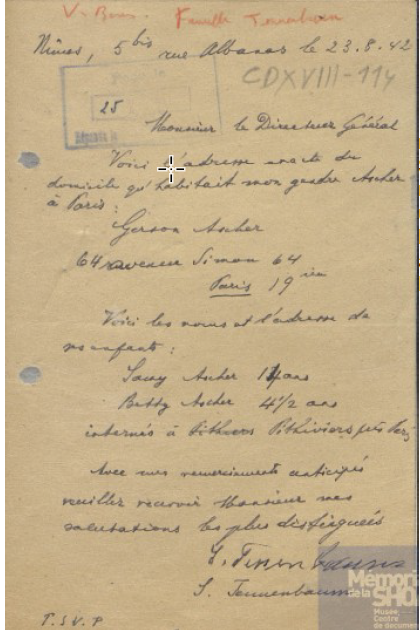 V. Famille Tennenbaum
Nîmes, 5 bis rue Albanas le 23.8.42
CDXVIII-114
25
Monsieur le Directeur Général
Voici l'adresse exacte du
domicile qu'habitait mon gendre Ascher
à Paris :
Gerson Ascher
64 avenue Simon 64
Paris 19 ième
Voici les noms et l'adresse de
ses enfants :
Ascher 14 ans
Betty Ascher 4 1/2 ans
internés à Pithivers Pithiviers près
Avec mes remerciements anticipés
veuillez recevoir Monsieur mes
salutations les plus distinguées
S. Tennenbaum
S. Tennenbaum
T.S.V.P.
Mémori
de la SHO
Musée
Centre
de documen